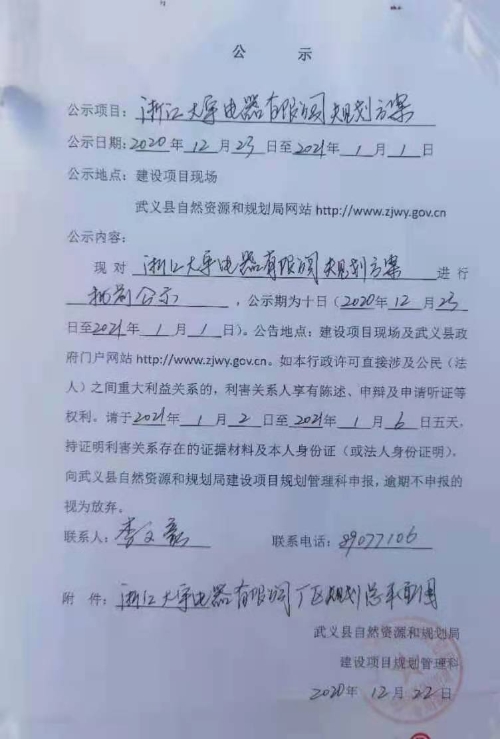 公 示
公示项目：浙江大宇电器有限公司规划方案
公示日期：2020年12月23日至2021年1月1日
公示地点：建设项目现场
武义县自然资源和规划局网站http://www.zjwy.gov.cn
公示内容：
现对浙江大宇电器有限公司规划方案进行
批前公示，公示期为十日（2020年12月23
日至2021年1月1日）。公告地点：建设项目现场及武义县政
府门户网站http://www.zjwy.gov.cn。如本行政许可直接涉及公民（法
人）之间重大利益关系的，利害关系人享有陈述、申辩及申请听证等
权利。请于2021年1月2日至2021年1月6日五天，
持证明利害关系存在的证据材料及本人身份证（或法人身份证明），
向武义县自然资源和规划局建设项目规划管理科申报，逾期不申报的
视为放弃。
联系人：李 联系电话：89077106
附 件：浙江大宇电器有限公司厂区规划总平面图
武义县自然资源和规划局
建设项目规划管理科
2020年12月22日